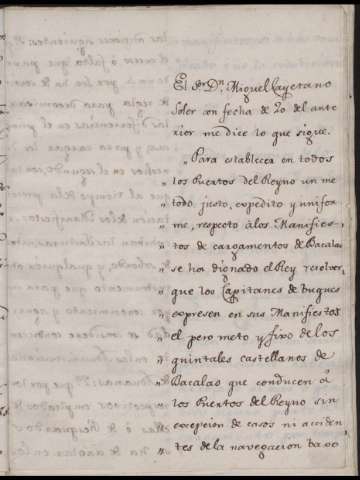 El Sor. Dn. Miguel Cayetano
Soler con fecha de 20 del ante
rior me dice lo que sigue.
„ Para establecer en todos
„ los Puertos del Reyno un me
„ todo justo, expedito y unifor
„ me, respecto à los Manifies-
„ tos de cargamentos de Bacalao
„ se ha dignado el Rey resolver,
„ que los Capitanes de buques
„ expresen en sus Manifiestos
„ el pero meto y fixo de los
„ quintales castellanos de
„ Bacalao que conducen à
„ los Puertos del Reyno sin
„ excepcion de casos ni acciden
„ tes de la navegacion baxo